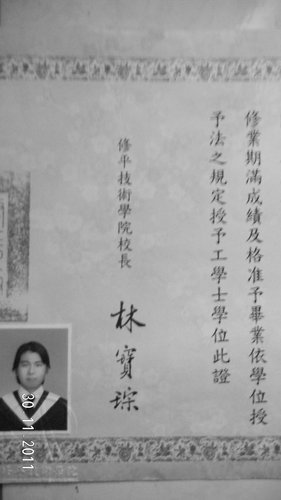 修業期滿成績及格准予畢業依學位授
予法之規定授予工學士學位此證
修平技術學院校長
林寶琮
30 11 2011